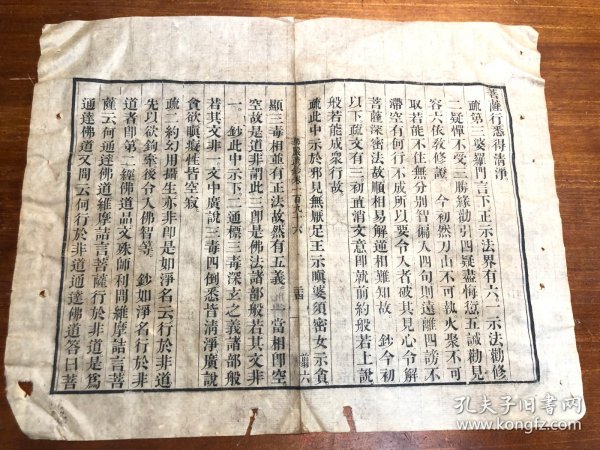 菩薩行悉得清淨
疏第三婆羅門言下正示法界有六一示法勸修
二疑憚不受三勝緣勸引四疑盡悔愆五誡勸見
容六依教修證　今初然刀山不可執火聚不可
取若能不住無分別智偏入四句則遠離四謗不
滯空有何行不成所以要令入者破其見心令解
菩薩深密法故順相易解逆相難知故　鈔今初
以下疏文有三初直消文意即就前約般若上說
般若能成衆行故
疏此中示於邪見無厭足王示瞋婆須密女示貪
顯三毒相並有正法故然有五義　一當相即空
空故是道非謂此三即是佛法諸部般若其文非
一　鈔此中示下二通標三毒深玄之義諸部般
若其文非一文中廣說三毒四倒悉皆清淨廣說
貪欲瞋癡性皆空寂
疏二約幻用攝生亦非即是如淨名云行於非道
先以欲鉤牽後令入佛智等　鈔如淨名行於非
道者即第二經佛道品文殊師利問維摩詰言菩
薩云何通達佛道維摩詰言菩薩行於非道是爲
通達佛道又問云何行於非道通達佛道答曰菩
孔夫子旧书网
www.kongfz.com